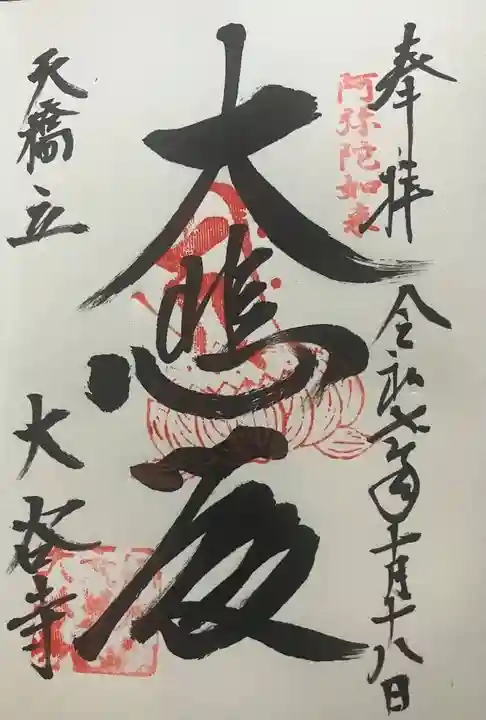 奉拝
阿弥陀如来
令和七年十一月十八日
大悲殿
天橋立
大谷寺